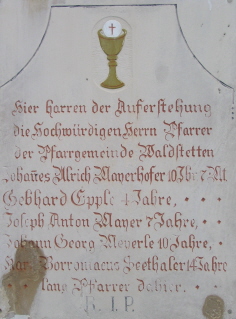 Hier harren der Auferstehung
die Hochwürdigen Herrn Pfarrer
der Pfarrgemeinde Waldstetten
Johañes Ulrich Mayerhofer 10 Jhr 7 Mt
Gebhard Epple 4 Jahre,
Joseph Anton Mayer 7 Jahre,
Johann Georg Meyerle 10 Jahre,
Karl Borromaeus Seethaler 14 Jahre
lang Pfarrer dahier.
R. I. P.